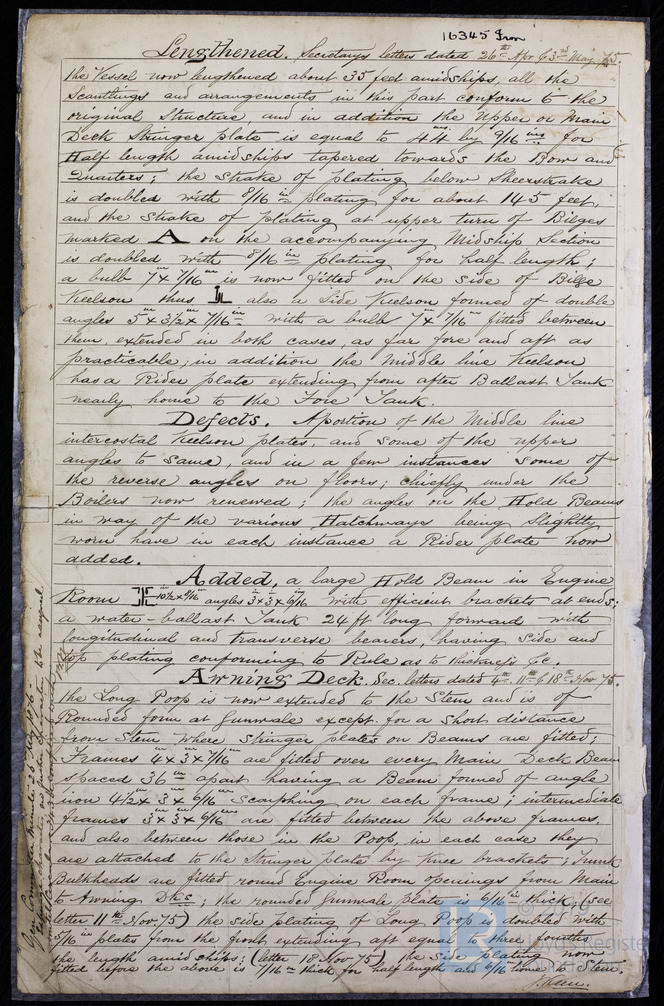 16345 Iron
Lengthened. Secretarys letters dated 26th Apr & 3rd May 75.
the Vessel now lengthened about 35 feet amidships, all the
Scantlings and arrangements in this part conform to the
original Structure, and in addition the Upper or Main
Deck Stringer plate is equal to 44 ins by 9/16 ins for
Half length amidships tapered towards the Bow and
Quarters; the Strake of plating below Sheerstrake
is doubled with 8/16 in plating for about 145 feet,
and the Strake of plating at upper turn of Bilges
marked A on the accompanying Midship Section
is doubled with 8/16 in plating for half length;
a bulb 7 in x 7/16 in is now fitted on the side of Bilge
Keelson thus also a Side Keelson formed of double
angles 5 in x 3 1/2 x 7/16 in with a bulb 7 in x 7/16 in fitted between
them, extended in both cases, as far fore and aft as
practicable; in addition the middle line Keelson
has a Rider plate extending from after Ballast Tank
nearly home to the Fore Tank.
Defects. A portion of the Middle line
intercostal Keelson plates, and some of the upper
angles to same, and in a few instances some of
the reverse angles on floors; chiefly under the
Boilers now renewed; the angles on the Hold Beams
in way of the various Hatchways being slightly
worn have in each instance a Rider plate now
added.
Added, a large Hold Beam in Engine
Room 10 1/2 x 9/16 angles 3 x 3 x 6/16 with efficient brackets at ends;
a water-ballast Tank 24 ft long forward with
longitudinal and transverse bearers, having side and
top plating conforming to Rule as to thickness &c.
Awning Deck. Sec. letters dated 4th 11th & 18th Nov 75.
the Long Poop is now extended to the Stem and is of
Rounded form at Gunwale except for a short distance
from Stem where Stringer plates on Beams are fitted;
Frames 4 x 3 x 7/16 are fitted over every Main Deck Beam
spaced 36 in apart having a Beam formed of angle
iron 4 1/2 x 3 x 6/16 scarphing on each frame; intermediate
frames 3 x 3 x 6/16 are fitted between the above frames,
and also between those in the Poop in each case they
are attached to the Stringer plate by knee brackets; Trunk
Bulkheads are fitted round Engine Room openings from Main
to Awning Dks; the rounded Gunwale plate is 6/16 in thick, (see
letter 11th Nov 75) the side plating of Long Poop is doubled with
5/16 in plates from the front extending aft equal to three fourths
the length amidships; (letter 18 Nov 75) the side plating now
fitted before the above is 7/16 in thick for half length and 6/16 home to Stem.